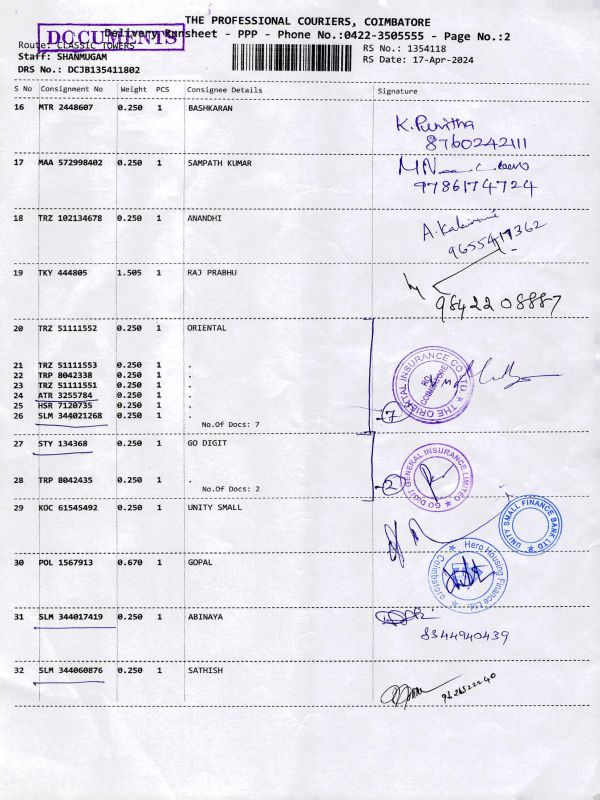 THE PROFESSIONAL COURIERS, COIMBATORE
DOCUMENTS
Delivery Runsheet - PPP - Phone No.:0422-3505555 - Page No.:2
Route: CLASSIC TOWERS RS No.: 1354118
Staff: SHANMUGAM RS Date: 17-Apr-2024
DRS No.: DCJB135411802
S No Consignment No Weight PCS Consignee Details Signature
16 MTR 2448607 0.250 1 BASHKARAN
K. Punitha
8760242111
17 MAA 572998402 0.250 1 SAMPATH KUMAR
9786174724
18 TRZ 102134678 0.250 1 ANANDHI
A.
9655419362
19 TKY 444805 1.505 1 RAJ PRABHU
98422 08887
20 TRZ 51111552 0.250 1 ORIENTAL
21 TRZ 51111553 0.250 1 .
22 TRP 8042338 0.250 1 .
23 TRZ 51111551 0.250 1 .
24 ATR 3255784 0.250 1 .
25 HSR 7120735 0.250 1 .
26 SLM 344021268 0.250 1 .
No.Of Docs: 7
THE ORIENTAL INSURANCE CO LTD
RO
COIMBATORE
7
27 STY 134368 0.250 1 GO DIGIT
28 TRP 8042435 0.250 1 .
No.Of Docs: 2
2
GO DIGIT GENERAL INSURANCE LIMITED
29 KOC 61545492 0.250 1 UNITY SMALL
UNITY SMALL FINANCE BANK LTD
30 POL 1567913 0.670 1 GOPAL
Hero Housing Finance Ltd
Coimbatore
31 SLM 344017419 0.250 1 ABINAYA
8344940439
32 SLM 344060876 0.250 1 SATHISH